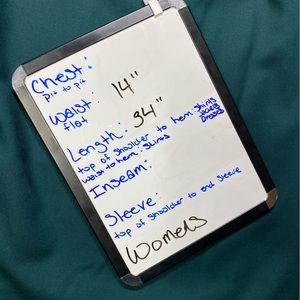 Chest:
pit to pit
Waist: 14"
flat
Length: 34"
top of shoulder to hem: shirts
dresses
waist to hem: skirts
Inseam:
Sleeve:
top of shoulder to end sleeve
Womens